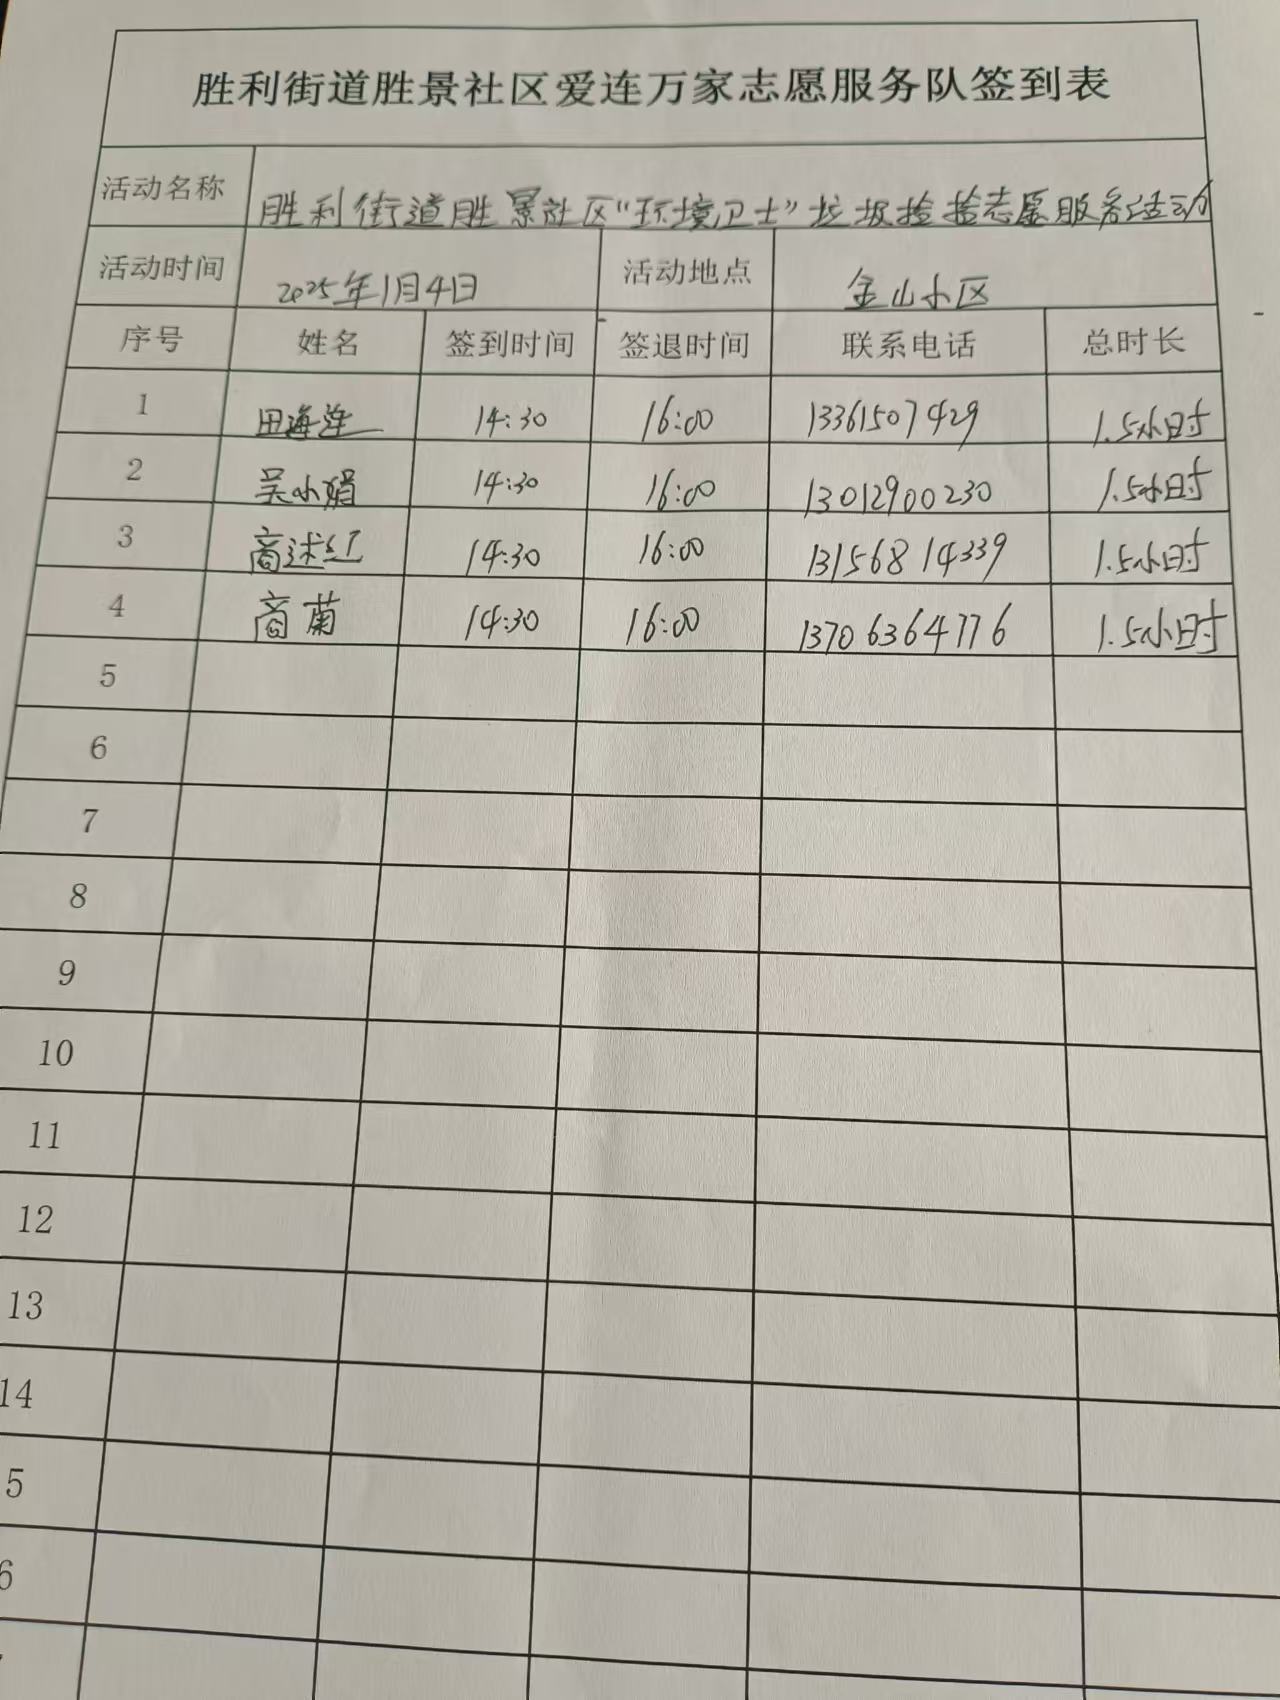 胜利街道胜景社区爱连万家志愿服务队签到表
活动名称 胜利街道胜景社区“环境卫士”垃圾捡拾志愿服务活动
活动时间 2025年1月4日 活动地点 金山小区
序号 姓名 签到时间 签退时间 联系电话 总时长
1 田海莲 14:30 16:00 13361507429 1.5小时
2 吴小娟 14:30 16:00 13012900230 1.5小时
3 商述红 14:30 16:00 13156814339 1.5小时
4 商菊 14:30 16:00 13706364776 1.5小时
5
6
7
8
9
10
11
12
13
14
5
6